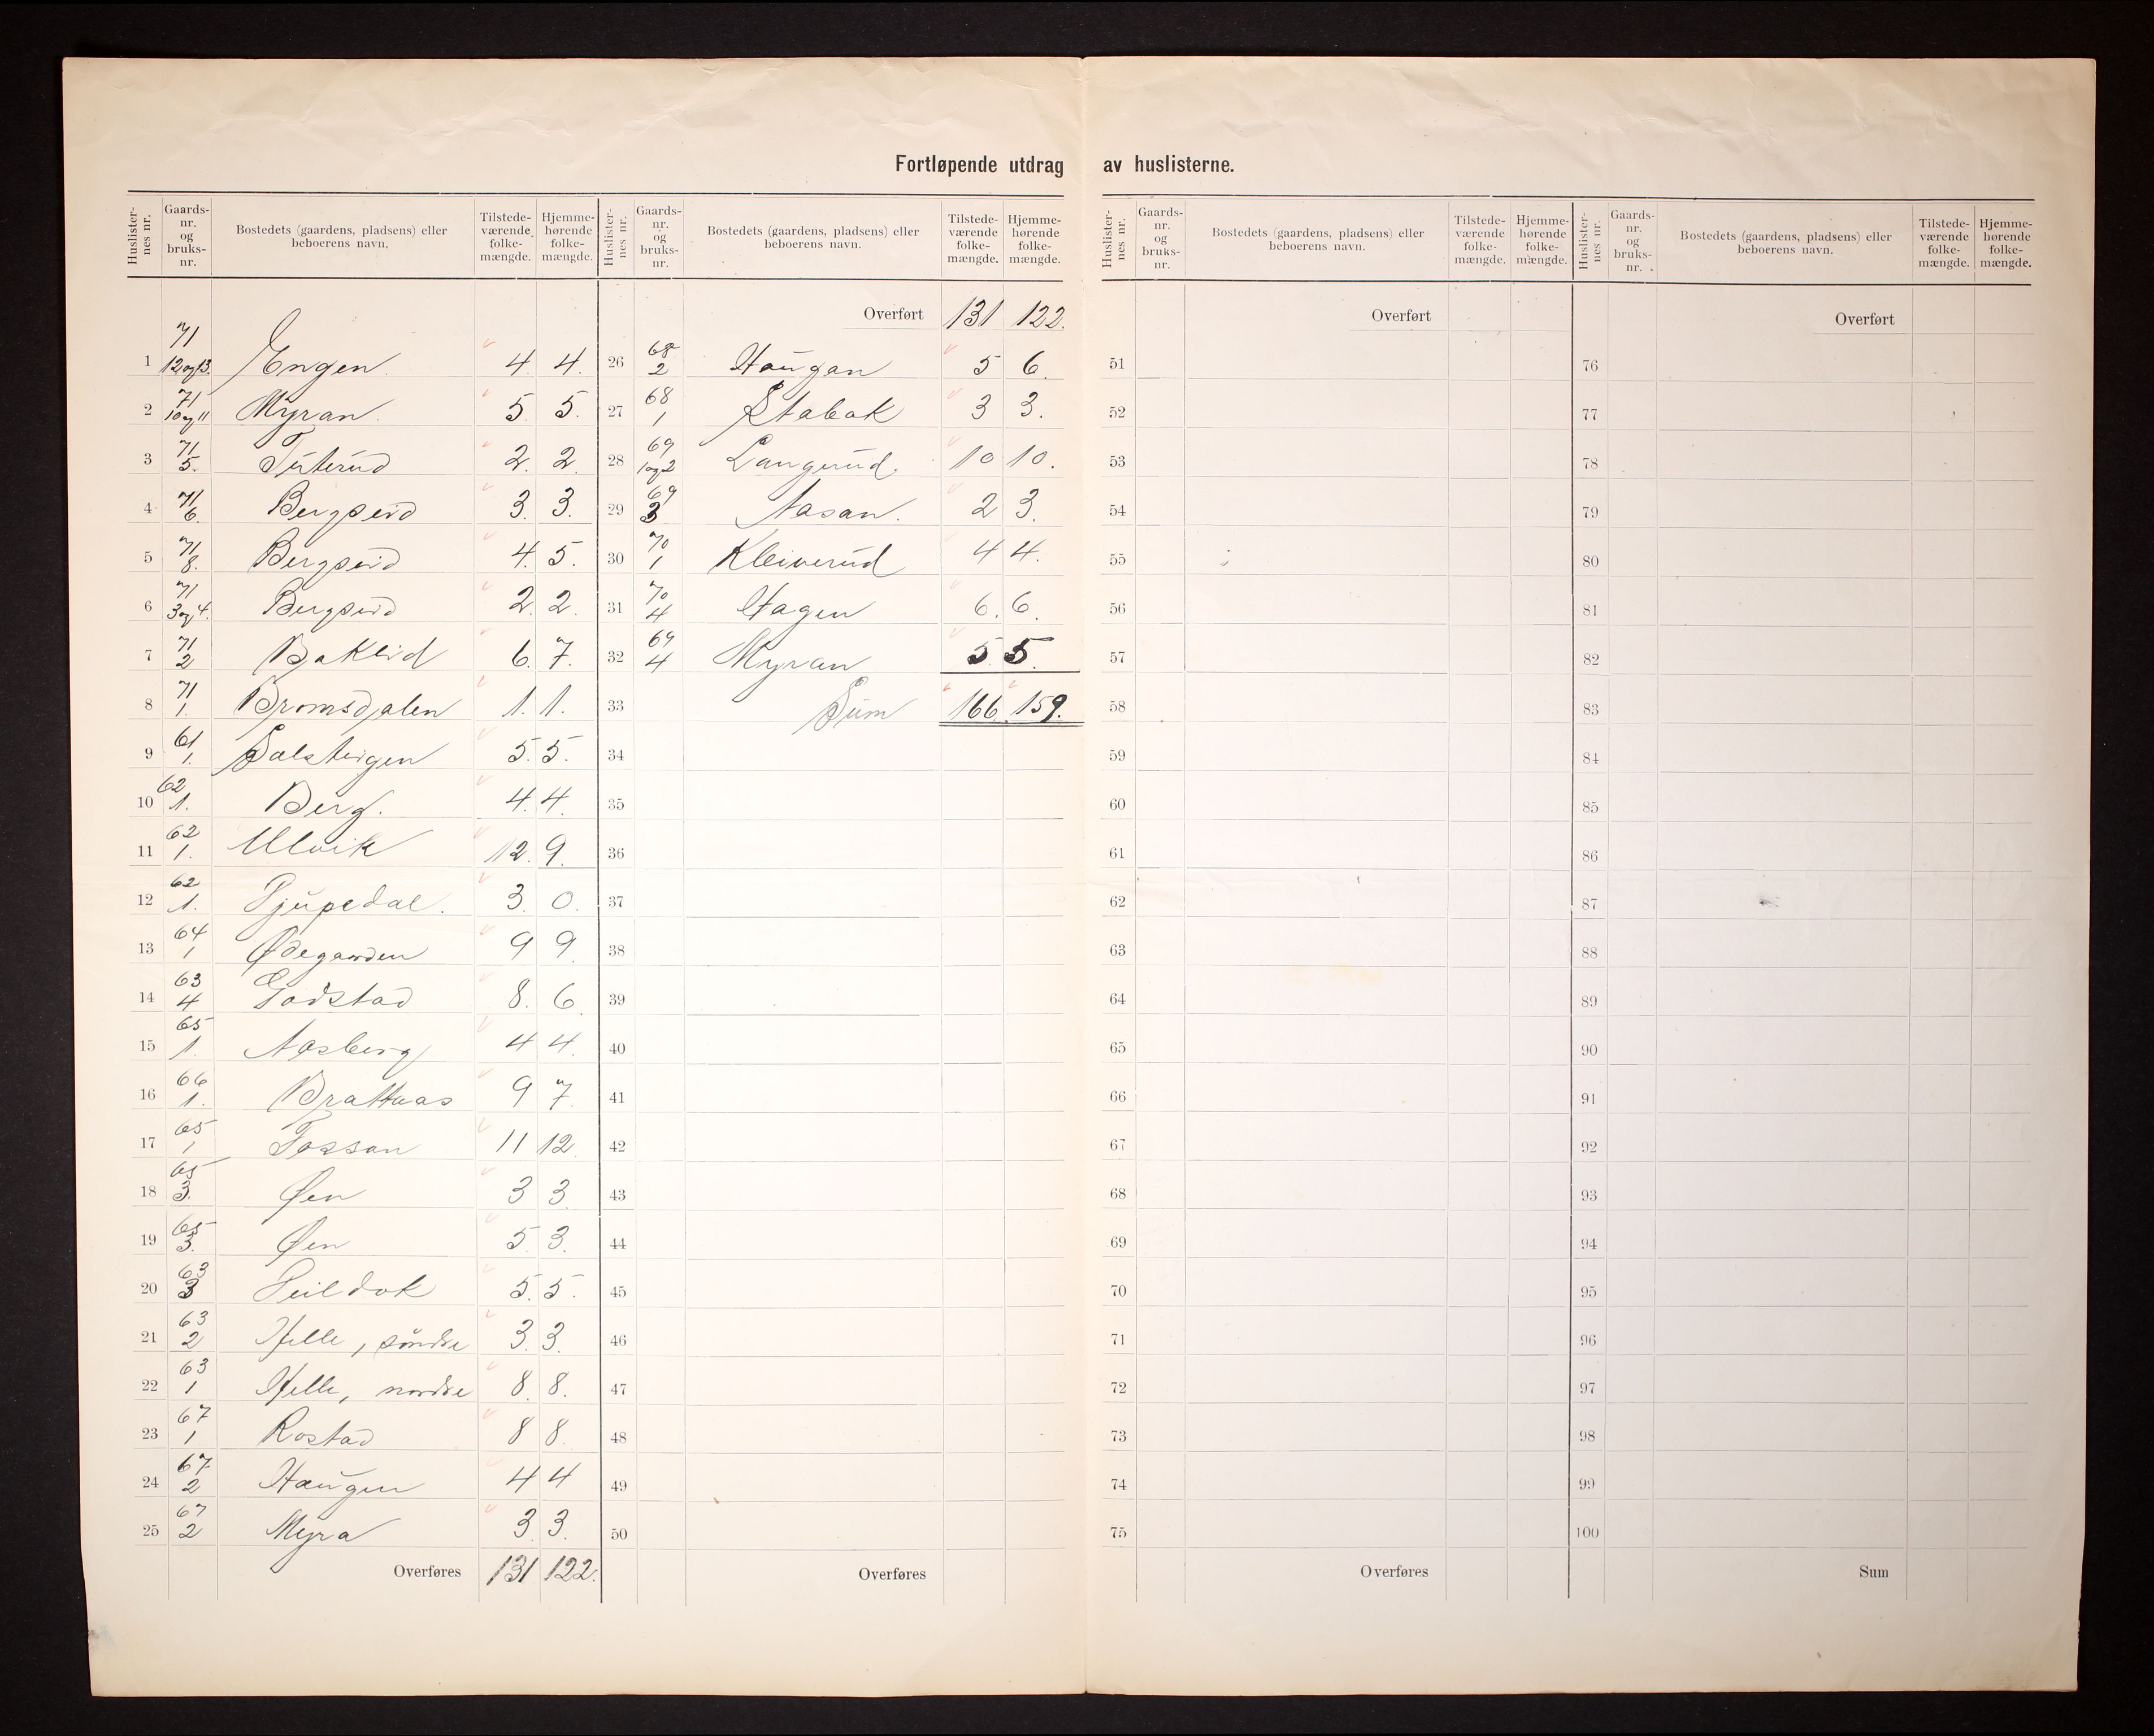 Fortløpende utdrag av huslisterne.
Huslister-nes nr. Gaards-nr. og bruks-nr. Bostedets (gaardens, pladsens) eller beboerens navn. Tilstede-værende folke-mængde. Hjemme-hørende folke-mængde.
1 71 12og13. Engen. 4. 4.
2 71 10og11 Myran. 5 5.
3 71 5. Tuterud 2. 2.
4 71 6. Bergseid 3. 3.
5 71 8. Bergseid 4. 5.
6 71 3og4. Bergseid 2. 2.
7 71 2 Baklid 6. 7.
8 71 1. Bromsdalen 1. 1.
9 61 1. 5. 5.
10 62 1. Berg. 4. 4.
11 62 1. Ulvik 12. 9.
12 62 1. Djupedal. 3. 0.
13 64 1 Ødegarden 9 9
14 63 4 Godstad 8. 6.
15 65 1. Aasberg 4 4.
16 66 1. Brattaas 9 7.
17 65 1 Fossan 11 12.
18 65 3. Øen 3 3
19 65 3. Øen 5. 3.
20 63 3 5. 5.
21 63 2 Helle, söndre 3. 3.
22 63 1 Helle, nordre 8. 8.
23 67 1 Rostad 8 8.
24 67 2 Haugen 4 4
25 67 2 Myra 3. 3.
Overføres 131 122.
Huslister-nes nr. Gaards-nr. og bruks-nr. Bostedets (gaardens, pladsens) eller beboerens navn. Tilstede-værende folke-mængde. Hjemme-hørende folke-mængde.
Overført 131 122.
26 68 2 Haugan 5 6.
27 68 1 Stabak 3 3.
28 69 1og2 Langerud. 10 10.
29 69 3 Aasan. 2 3.
30 70 1 Kleiverud 4 4.
31 70 4 Hagen 6. 6.
32 69 4 Myran 5 5.
33 Sum 166 159.
34
35
36
37
38
39
40
41
42
43
44
45
46
47
48
49
50
Overføres
Huslister-nes nr. Gaards-nr. og bruks-nr. Bostedets (gaardens, pladsens) eller beboerens navn. Tilstede-værende folke-mængde. Hjemme-hørende folke-mængde.
Overført
51
52
53
54
55
56
57
58
59
60
61
62
63
64
65
66
67
68
69
70
71
72
73
74
75
Overføres
Huslister-nes nr. Gaards-nr. og bruks-nr. Bostedets (gaardens, pladsens) eller beboerens navn. Tilstede-værende folke-mængde. Hjemme-hørende folke-mængde.
Overført
76
77
78
79
80
81
82
83
84
85
86
87
88
89
90
91
92
93
94
95
96
97
98
99
100
Sum